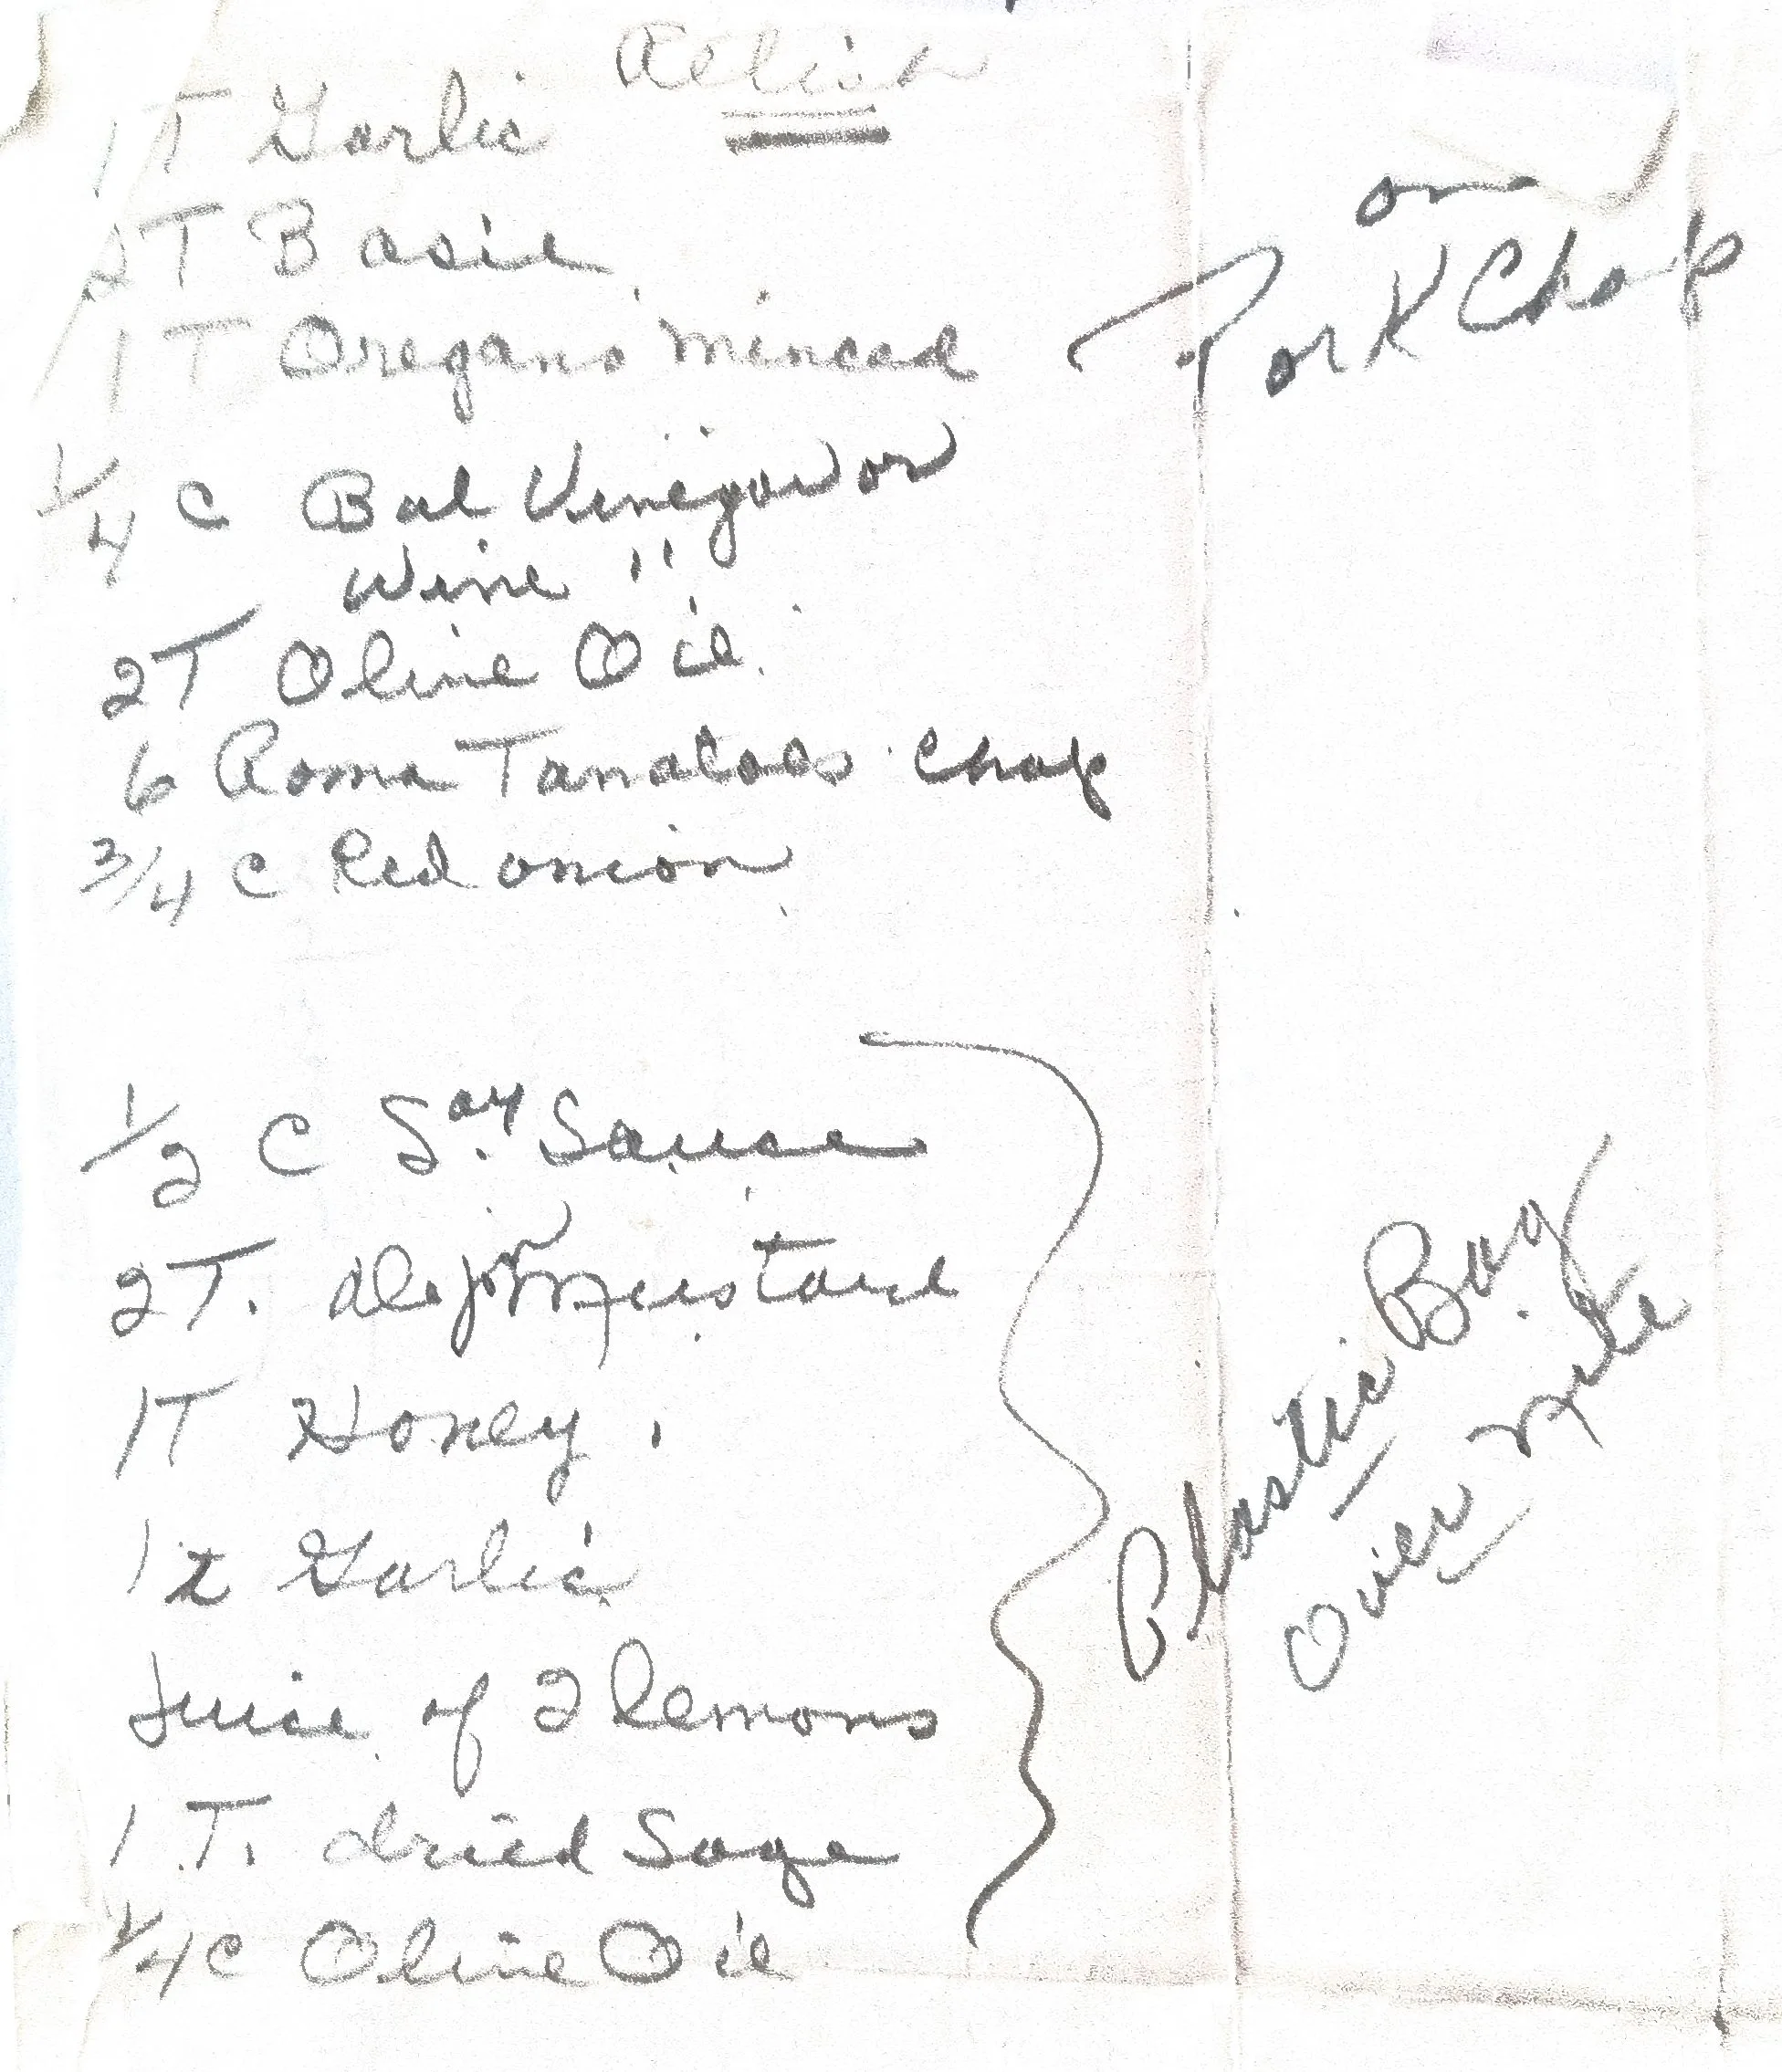 Relish
1T Garlic
2T Basil
1T Oregano minced
on
Pork Chop
1/4 C Bal Vinegar or
Wine "
2T Olive Oil
6 Roma Tomatoes Chop
3/4 C Red onion
1/2 C Soy Sauce
2T. dejon Mustard
1T Honey
1t Garlic
Juice of 2 lemons
1 T. dried Sage
1/4 C Olive Oil
Plastic Bag
Over Nite